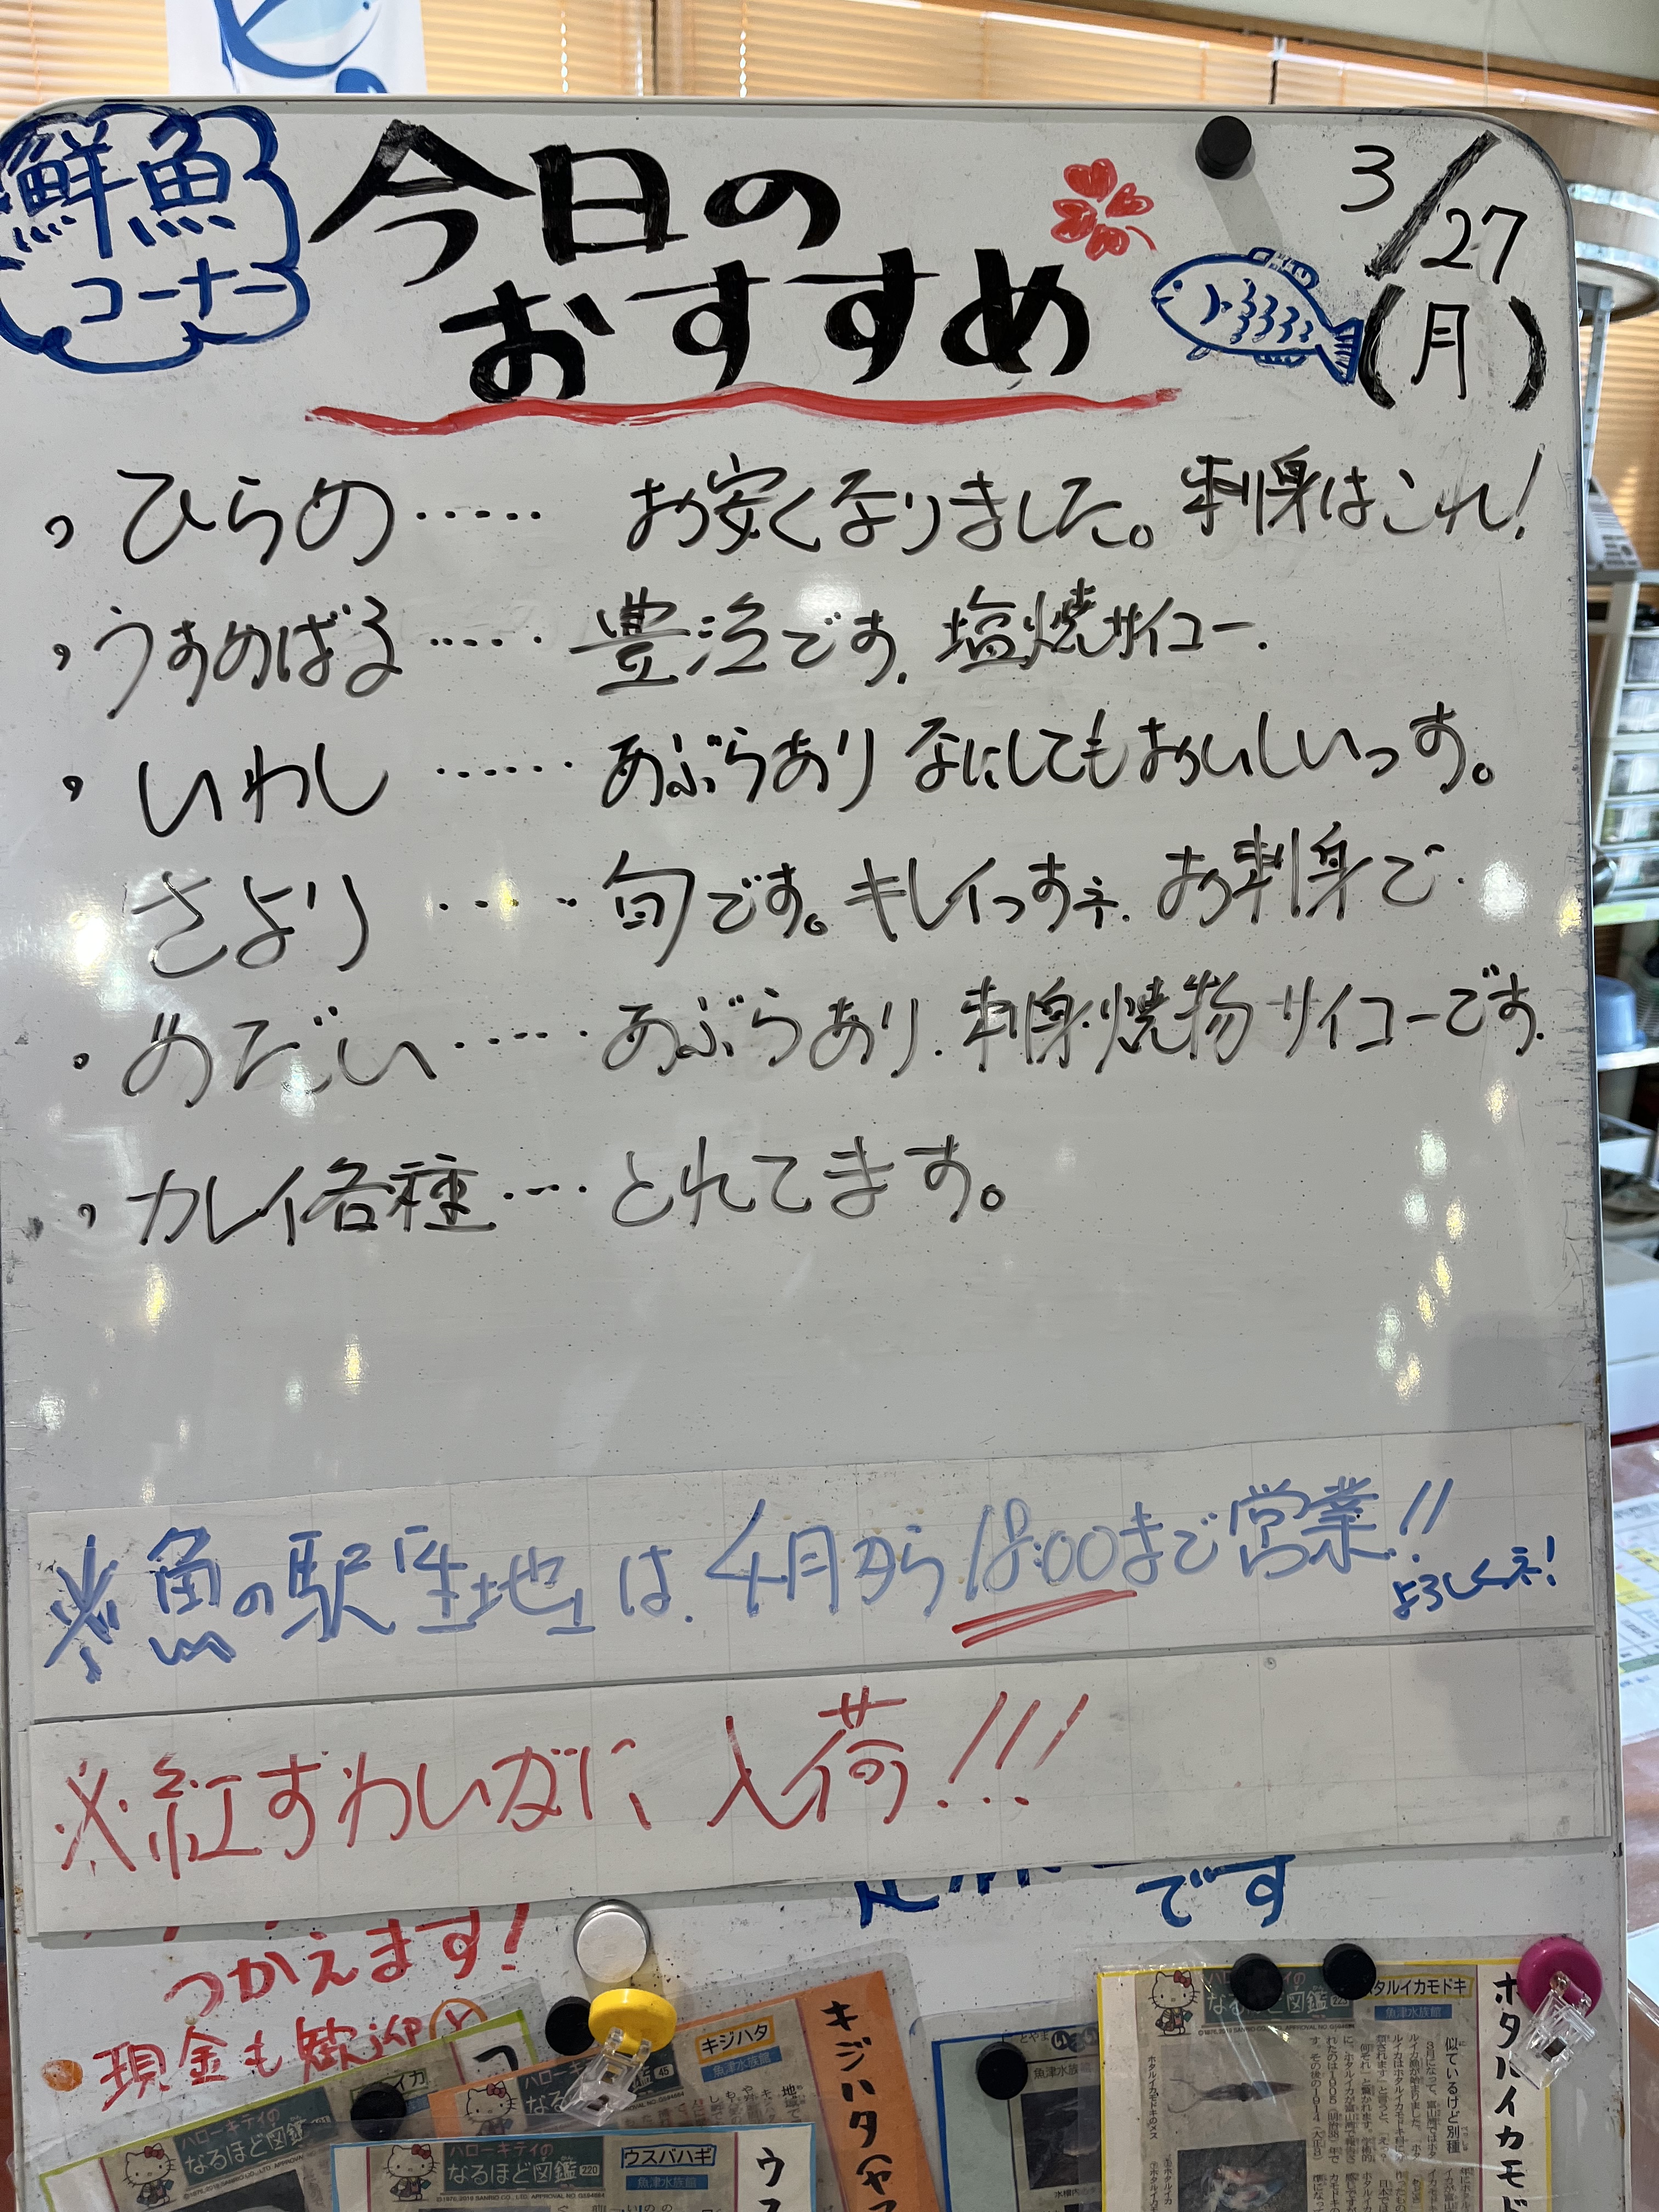 鮮魚
コーナー
今日の
おすすめ
3/27
(月)
・ひらめ・・・・・ お安くなりました。刺身はこれ!
・うすめばる・・・・・ 豊漁です. 塩焼サイコー.
・いわし・・・・・・ あぶらあり なにしてもおいしいっす。
さより・・・・・ 旬です。キレイっすネ. お刺身で
・めだい・・・・・ あぶらあり. 刺身・焼物サイコーです.
・カレイ各種・・・・ とれてます。
※魚の駅「生地」は. 4月から18:00まで営業!!
よろしくネ!
※紅ずわいがに 入荷!!!
です
つかえます!
現金も歓迎
キジハタ
魚津水族館
キジハタ
ハローキティの
なるほど図鑑
45
ハローキティの
なるほど図鑑
ハローキティの
なるほど図鑑 220
ウスバハギ
魚津水族館
ウス
魚津水族館
なるほど図鑑
タルイカモドキ
魚津水族館
ホタルイカモド
似ているけど別種